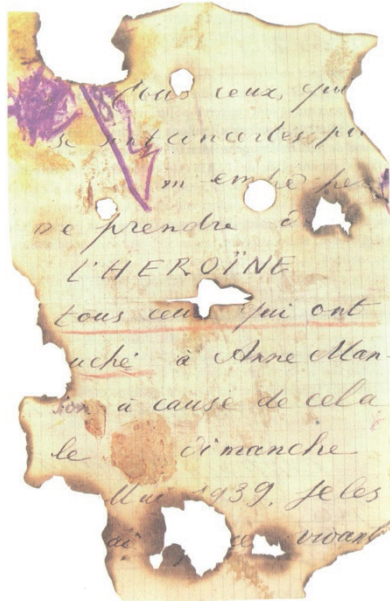 Tous ceux qui
se sont concertés po
m empê her
de prendre
L'HEROÏNE
tous ceux qui ont
uché à Anne Man-
son à cause de cela
le dimanche
1939. Je les
vivant